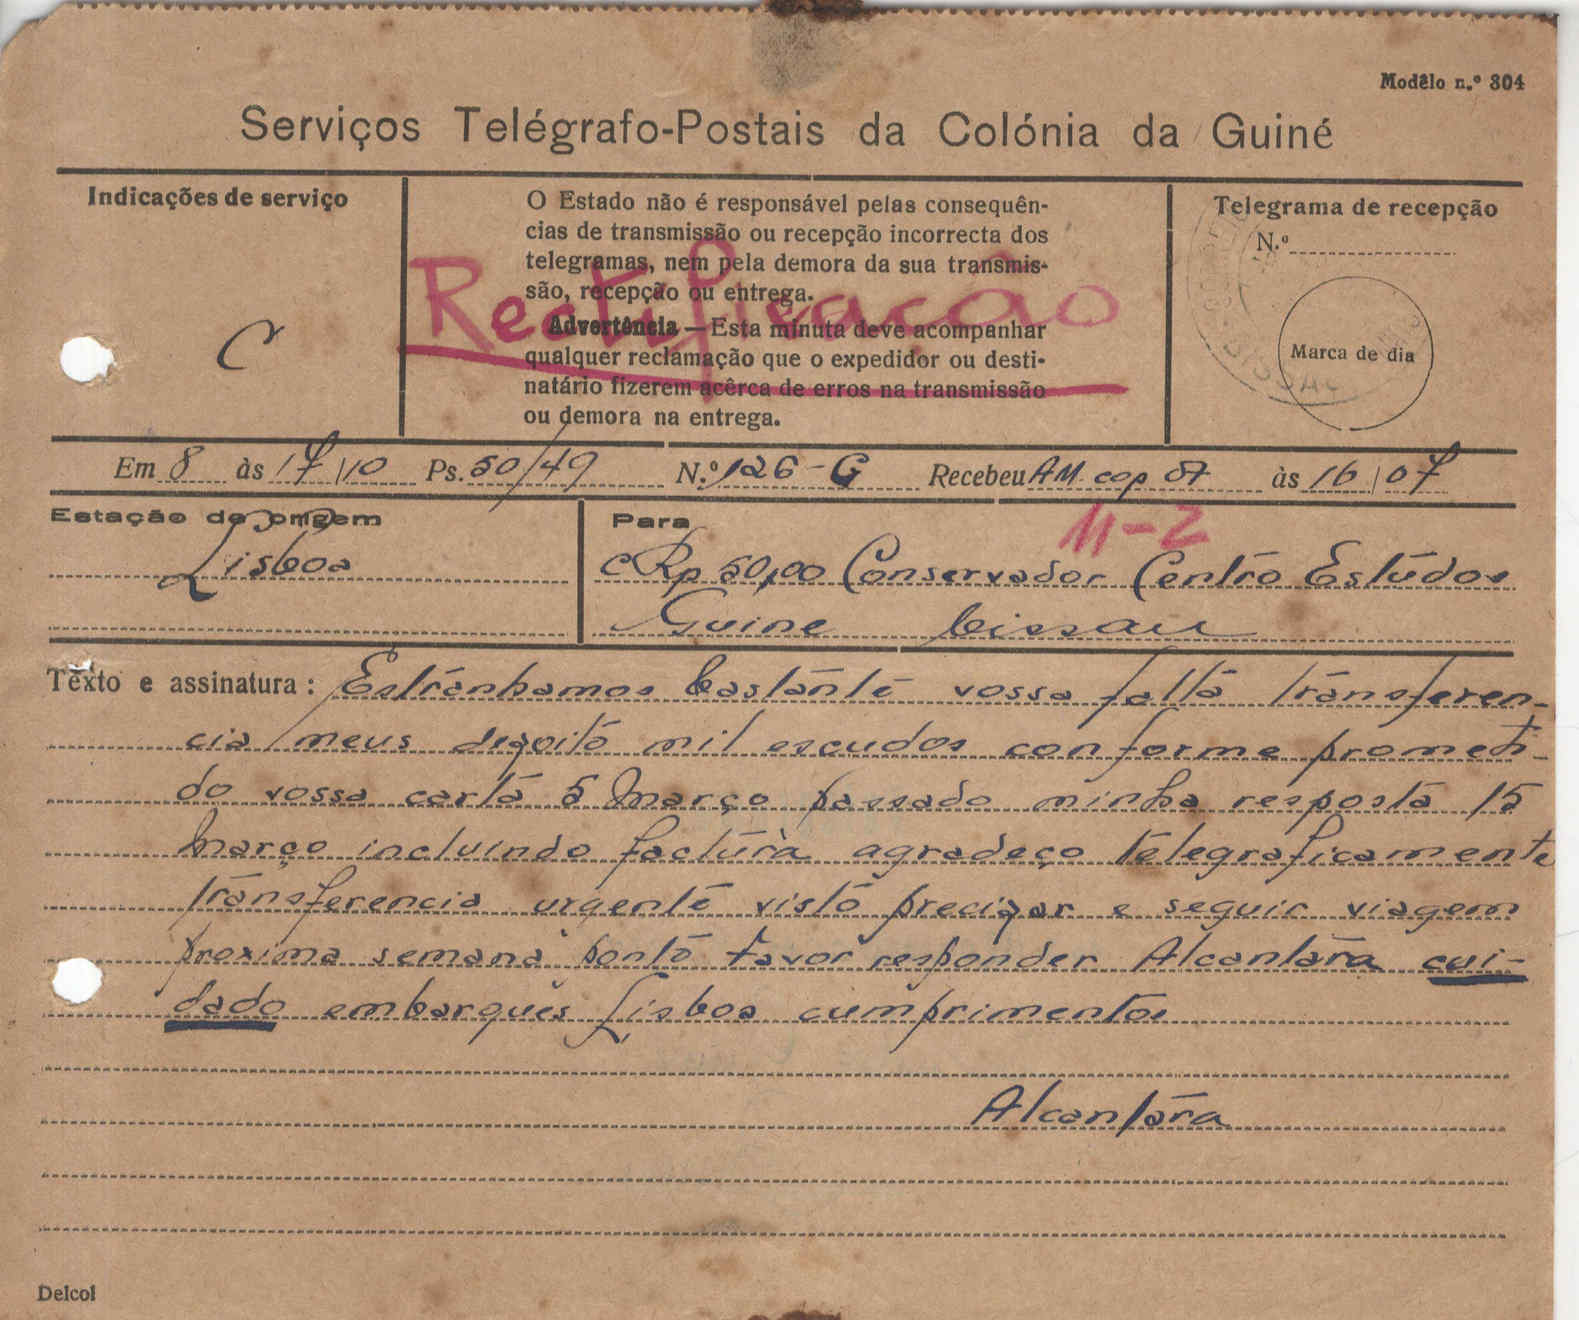 Modêlo n.º 304
Serviços Telégrafo-Postais da Colónia da Guiné
Indicações de serviço
C
O Estado não é responsável pelas consequên-
cias de transmissão ou recepção incorrecta dos
telegramas, nem pela demora da sua transmis-
são, recepção ou entrega.
Advertência — Esta minuta deve acompanhar
qualquer reclamação que o expedidor ou desti-
natário fizerem acêrca de erros na transmissão
ou demora na entrega.
Rectificação
Telegrama de recepção
N.º
Marca de dia
Em 8 às 17/10 Ps. 50/49 N.º 126-G Recebeu AM cop às 16/07
Estação de origem
Lisboa
Para
11-2
Rp 50,00 Conservador Centro Estudos
Guine bissau
Texto e assinatura: Estranhamos bastante vossa falta transferen-
cia meus dezoito mil escudos conforme prometi-
do vossa carta 5 Março passado minha resposta 15
Março incluindo factura agradeço telegraficamente
transferencia urgente visto precizar e seguir viagem
proxima semana ponto favor responder Alcantara cui-
dado embarques Lisboa cumprimentos
Alcantara
Delcol